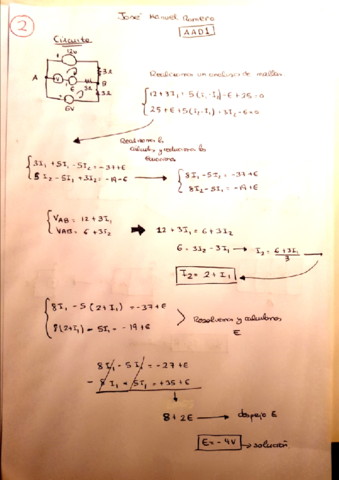 José Manuel Romero
AAD1
2
Circuito
12v
3Ω
A
B
3Ω
6V
Realizamos un analisis de mallas
12+3I₁+5(I₁-I₂)-E+25=0
25+E+5(I₂-I₁)-3I₂-6=0
Realizamos los
calculos y reducimos las
ecuaciones
3I₁+5I₁-5I₂=-37+E
5I₂-5I₁+3I₂=-19-E
8I₁-5I₂=-37+E
8I₂-5I₁=-19+E
V_AB=12+3I₁
V_AB=6+3I₂
12+3I₁=6+3I₂
6=3I₂-3I₁
I₂=6+3I₁/3
I₂=2+I₁
8I₁-5(2+I₁)=-37+E
8(2+I₁)-5I₁=-19+E
Resolvemos y calculamos
E
8I₁-5I₁=-27+E
-8I₁+5I₁=+35+E
8+2E
despejo E
E=-4V
solución